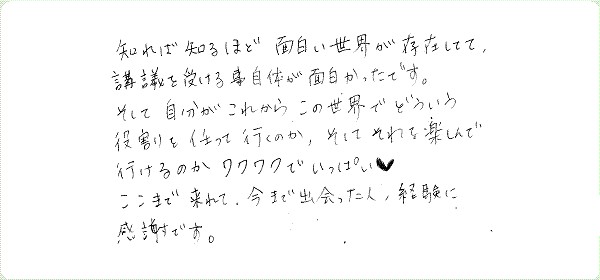 知れば知るほど 面白い世界が存在してて、
講議を受ける事自体が面白かったです。
そして 自分がこれから この世界で どういう
役割りを任って行くのか, そしてそれを楽しんで
行けるのか ワクワクで いっぱい♥
ここまで来れて、今まで出会った人, 経験に
感謝です。